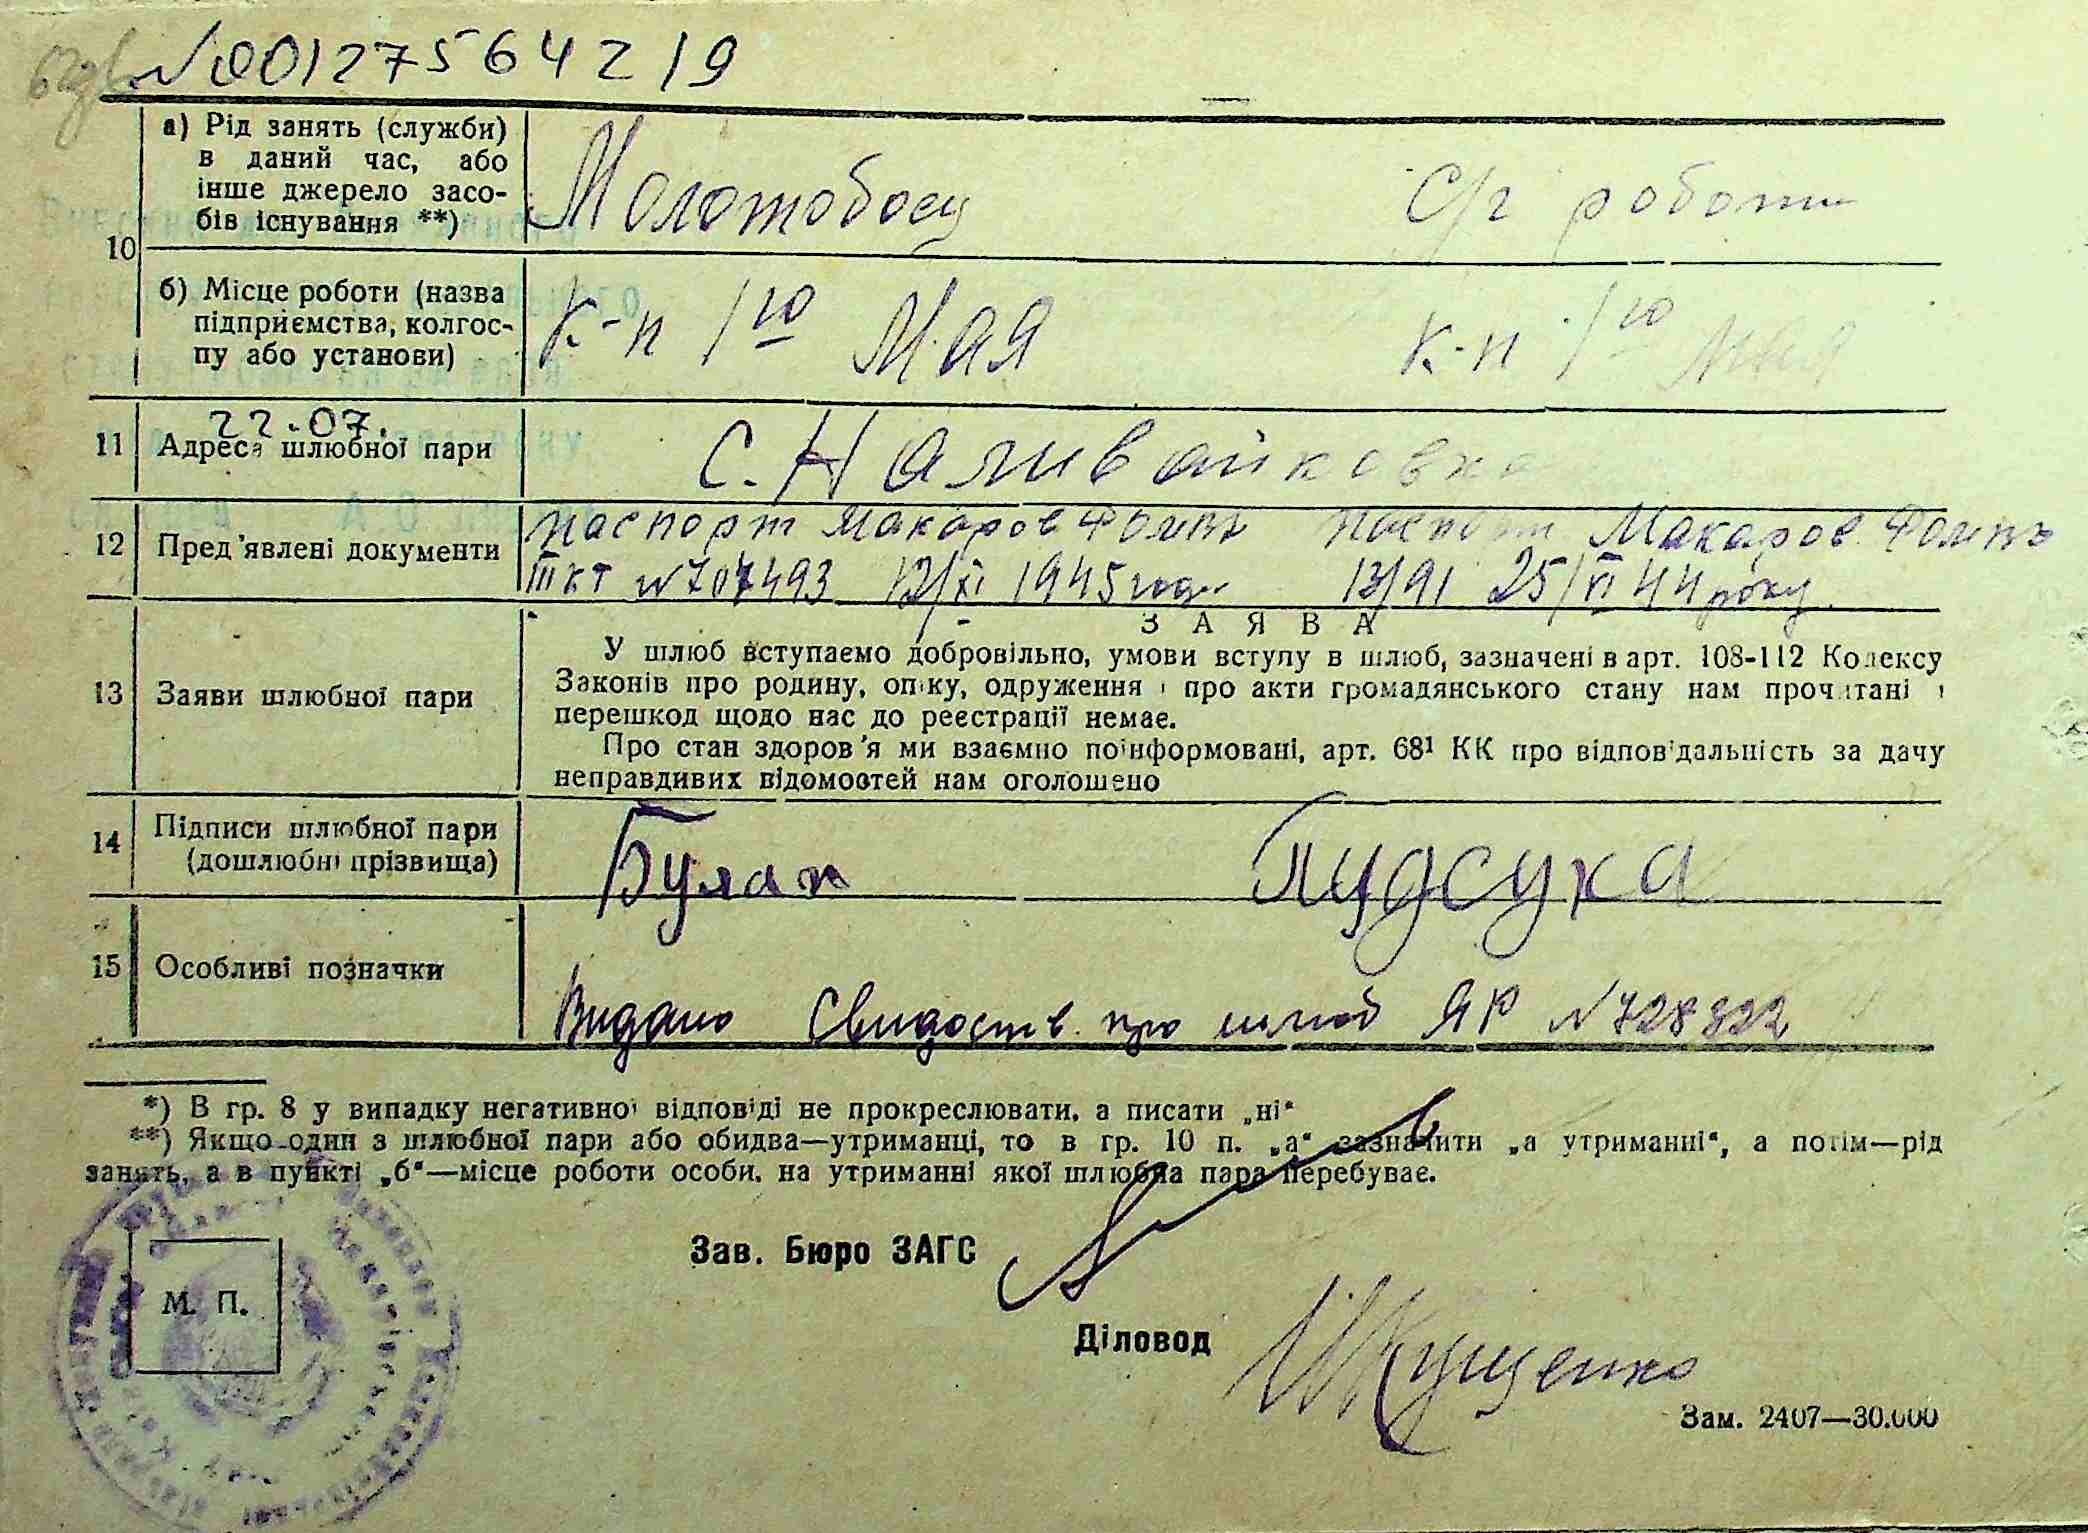 №00127564219
а) Рід занять (служби)
в даний час, або
інше джерело засо-
бів існування **)
Молотобоец С/г роботи
10
б) Місце роботи (назва
підприємства, колгос-
пу або установи)
К-п 1го Мая к-п 1го Мая
22.07.
11 Адреса шлюбної пари с. Наливайковка
12 Пред'явлені документи
паспорт Макаров паспорт Макаров
III КТ №707493 12/XI 1945 года 13/91 25/VI 44 року
ЗАЯВА
13 Заяви шлюбної пари
У шлюб вступаємо добровільно, умови вступу в шлюб, зазначені в арт. 108-112 Кодексу
Законів про родину, опіку, одруження і про акти громадянського стану нам прочитані і
перешкод щодо нас до реєстрації немає.
Про стан здоров'я ми взаємно поінформовані, арт. 68¹ КК про відповідальність за дачу
неправдивих відомостей нам оголошено
14 Підписи шлюбної пари
(дошлюбні прізвища)
Булах
15 Особливі позначки
Видано Свидоств. про шлюб ЯР №728822
*) В гр. 8 у випадку негативної відповіді не прокреслювати, а писати „ні“
**) Якщо один з шлюбної пари або обидва—утриманці, то в гр. 10 п. „а“ зазначити „а утриманні“, а потім—рід
занять, а в пункті „б“—місце роботи особи, на утриманні якої шлюбна пара перебуває.
Зав. Бюро ЗАГС
М. П.
Діловод Кущенко
Зам. 2407—30.000